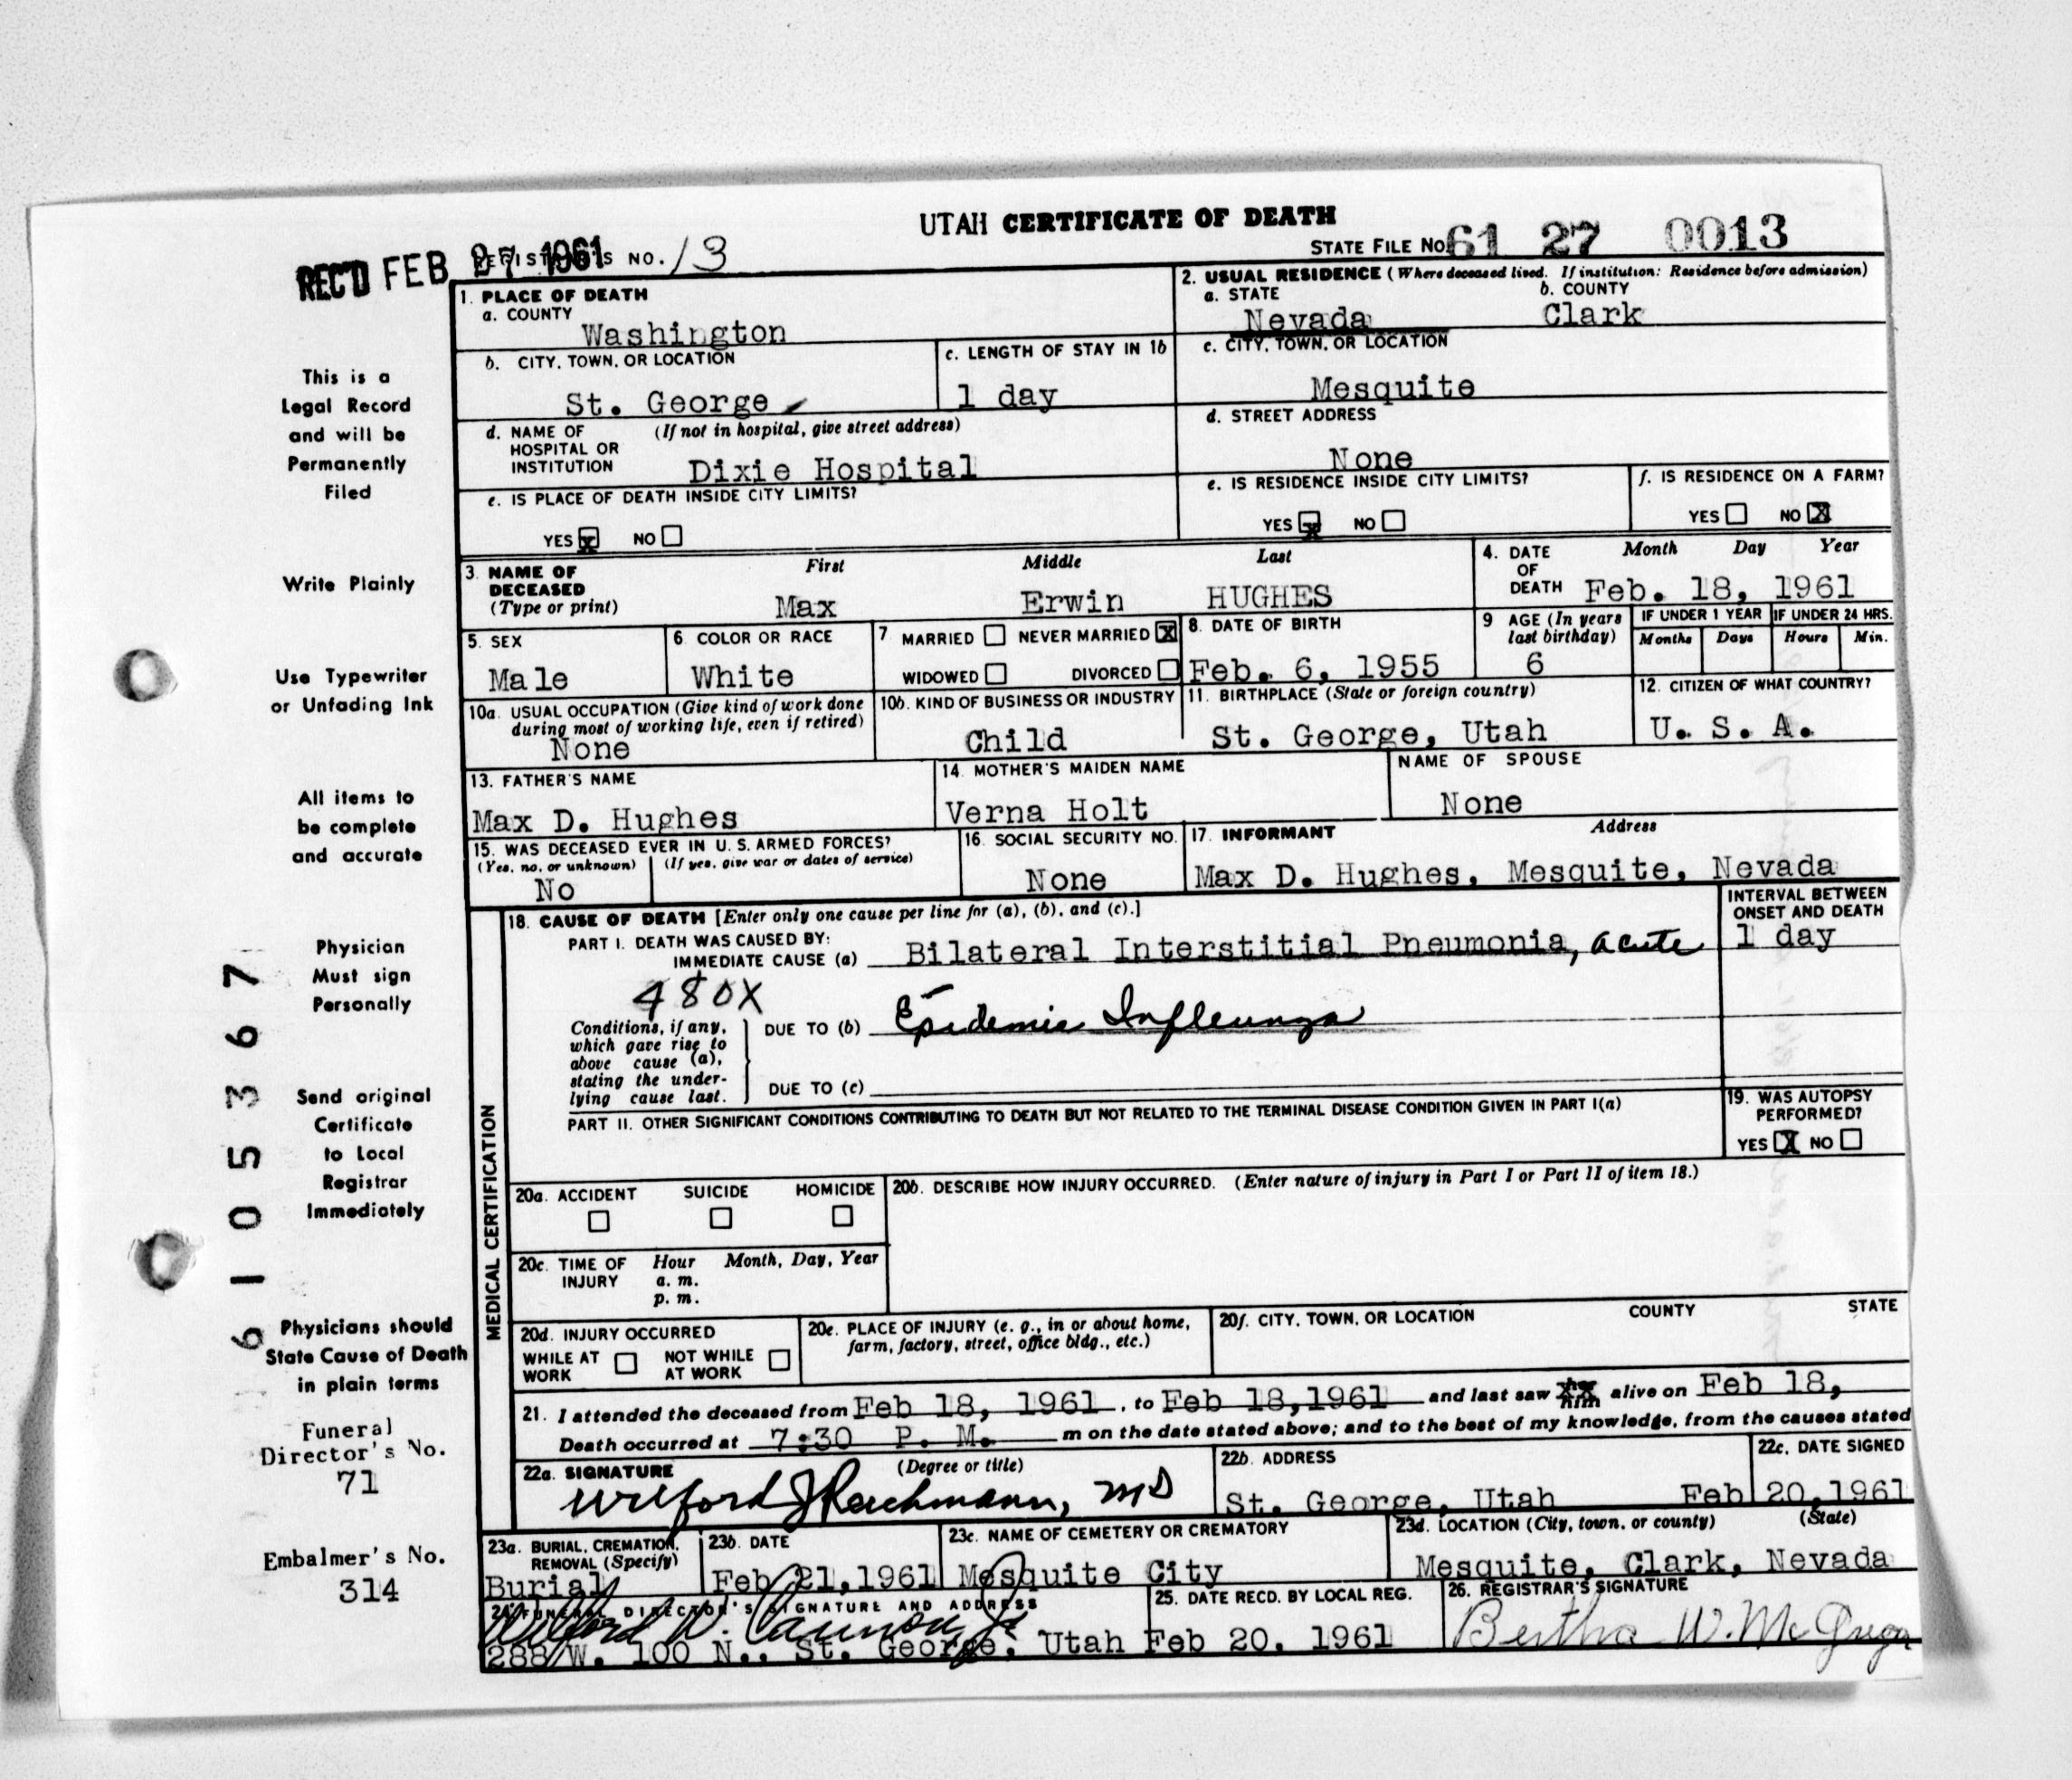 UTAH CERTIFICATE OF DEATH
REC'D FEB 27 1961
REGISTRAR'S NO. 13
STATE FILE NO. 61 27 0013
1. PLACE OF DEATH
a. COUNTY
Washington
2. USUAL RESIDENCE (Where deceased lived. If institution: Residence before admission)
a. STATE
Nevada
b. COUNTY
Clark
b. CITY, TOWN, OR LOCATION
St. George
c. LENGTH OF STAY IN 1b
1 day
c. CITY, TOWN, OR LOCATION
Mesquite
d. NAME OF HOSPITAL OR INSTITUTION
(If not in hospital, give street address)
Dixie Hospital
d. STREET ADDRESS
None
e. IS PLACE OF DEATH INSIDE CITY LIMITS?
YES X NO
e. IS RESIDENCE INSIDE CITY LIMITS?
YES X NO
f. IS RESIDENCE ON A FARM?
YES NO X
3. NAME OF DECEASED (Type or print)
First Middle Last
Max Erwin HUGHES
4. DATE OF DEATH
Month Day Year
Feb. 18, 1961
5. SEX
Male
6. COLOR OR RACE
White
7. MARRIED NEVER MARRIED X
WIDOWED DIVORCED
8. DATE OF BIRTH
Feb. 6, 1955
9 AGE (In years last birthday)
6
IF UNDER 1 YEAR
Months Days
IF UNDER 24 HRS.
Hours Min.
10a. USUAL OCCUPATION (Give kind of work done during most of working life, even if retired)
None
10b. KIND OF BUSINESS OR INDUSTRY
Child
11. BIRTHPLACE (State or foreign country)
St. George, Utah
12. CITIZEN OF WHAT COUNTRY?
U. S. A.
13. FATHER'S NAME
Max D. Hughes
14. MOTHER'S MAIDEN NAME
Verna Holt
NAME OF SPOUSE
None
15. WAS DECEASED EVER IN U. S. ARMED FORCES?
(Yes, no, or unknown) (If yes, give war or dates of service)
No
16. SOCIAL SECURITY NO.
None
17. INFORMANT Address
Max D. Hughes, Mesquite, Nevada
MEDICAL CERTIFICATION
18. CAUSE OF DEATH [Enter only one cause per line for (a), (b), and (c).]
INTERVAL BETWEEN ONSET AND DEATH
1 day
PART I. DEATH WAS CAUSED BY:
IMMEDIATE CAUSE (a) Bilateral Interstitial Pneumonia, acute
480X
Conditions, if any, which gave rise to above cause (a), stating the underlying cause last.
DUE TO (b) Epidemic Influenza
DUE TO (c)
PART II. OTHER SIGNIFICANT CONDITIONS CONTRIBUTING TO DEATH BUT NOT RELATED TO THE TERMINAL DISEASE CONDITION GIVEN IN PART I(a)
19. WAS AUTOPSY PERFORMED?
YES X NO
20a. ACCIDENT SUICIDE HOMICIDE
20b. DESCRIBE HOW INJURY OCCURRED. (Enter nature of injury in Part I or Part II of item 18.)
20c. TIME OF INJURY
Hour Month, Day, Year
a. m.
p. m.
20d. INJURY OCCURRED
WHILE AT WORK NOT WHILE AT WORK
20e. PLACE OF INJURY (e. g., in or about home, farm, factory, street, office bldg., etc.)
20f. CITY, TOWN, OR LOCATION COUNTY STATE
21. I attended the deceased from Feb 18, 1961, to Feb 18,1961 and last saw her him alive on Feb 18,
Death occurred at 7:30 P. M. m on the date stated above; and to the best of my knowledge, from the causes stated
22a. SIGNATURE (Degree or title)
Wilford J Reichmann, MD
22b. ADDRESS
St. George, Utah
22c. DATE SIGNED
Feb 20,1961
23a. BURIAL, CREMATION, REMOVAL (Specify)
Burial
23b. DATE
Feb 21,1961
23c. NAME OF CEMETERY OR CREMATORY
Mesquite City
23d. LOCATION (City, town, or county) (State)
Mesquite, Clark, Nevada
24. FUNERAL DIRECTOR'S SIGNATURE AND ADDRESS
W. Cannon, Jr
288 W. 100 N., St. George, Utah
25. DATE RECD. BY LOCAL REG.
Feb 20, 1961
26. REGISTRAR'S SIGNATURE
Bertha W. McGregor
This is a
Legal Record
and will be
Permanently
Filed
Write Plainly
Use Typewriter
or Unfading Ink
All items to
be complete
and accurate
Physician
Must sign
Personally
Send original
Certificate
to Local
Registrar
Immediately
Physicians should
State Cause of Death
in plain terms
Funeral
Director's No.
71
Embalmer's No.
314
6105367